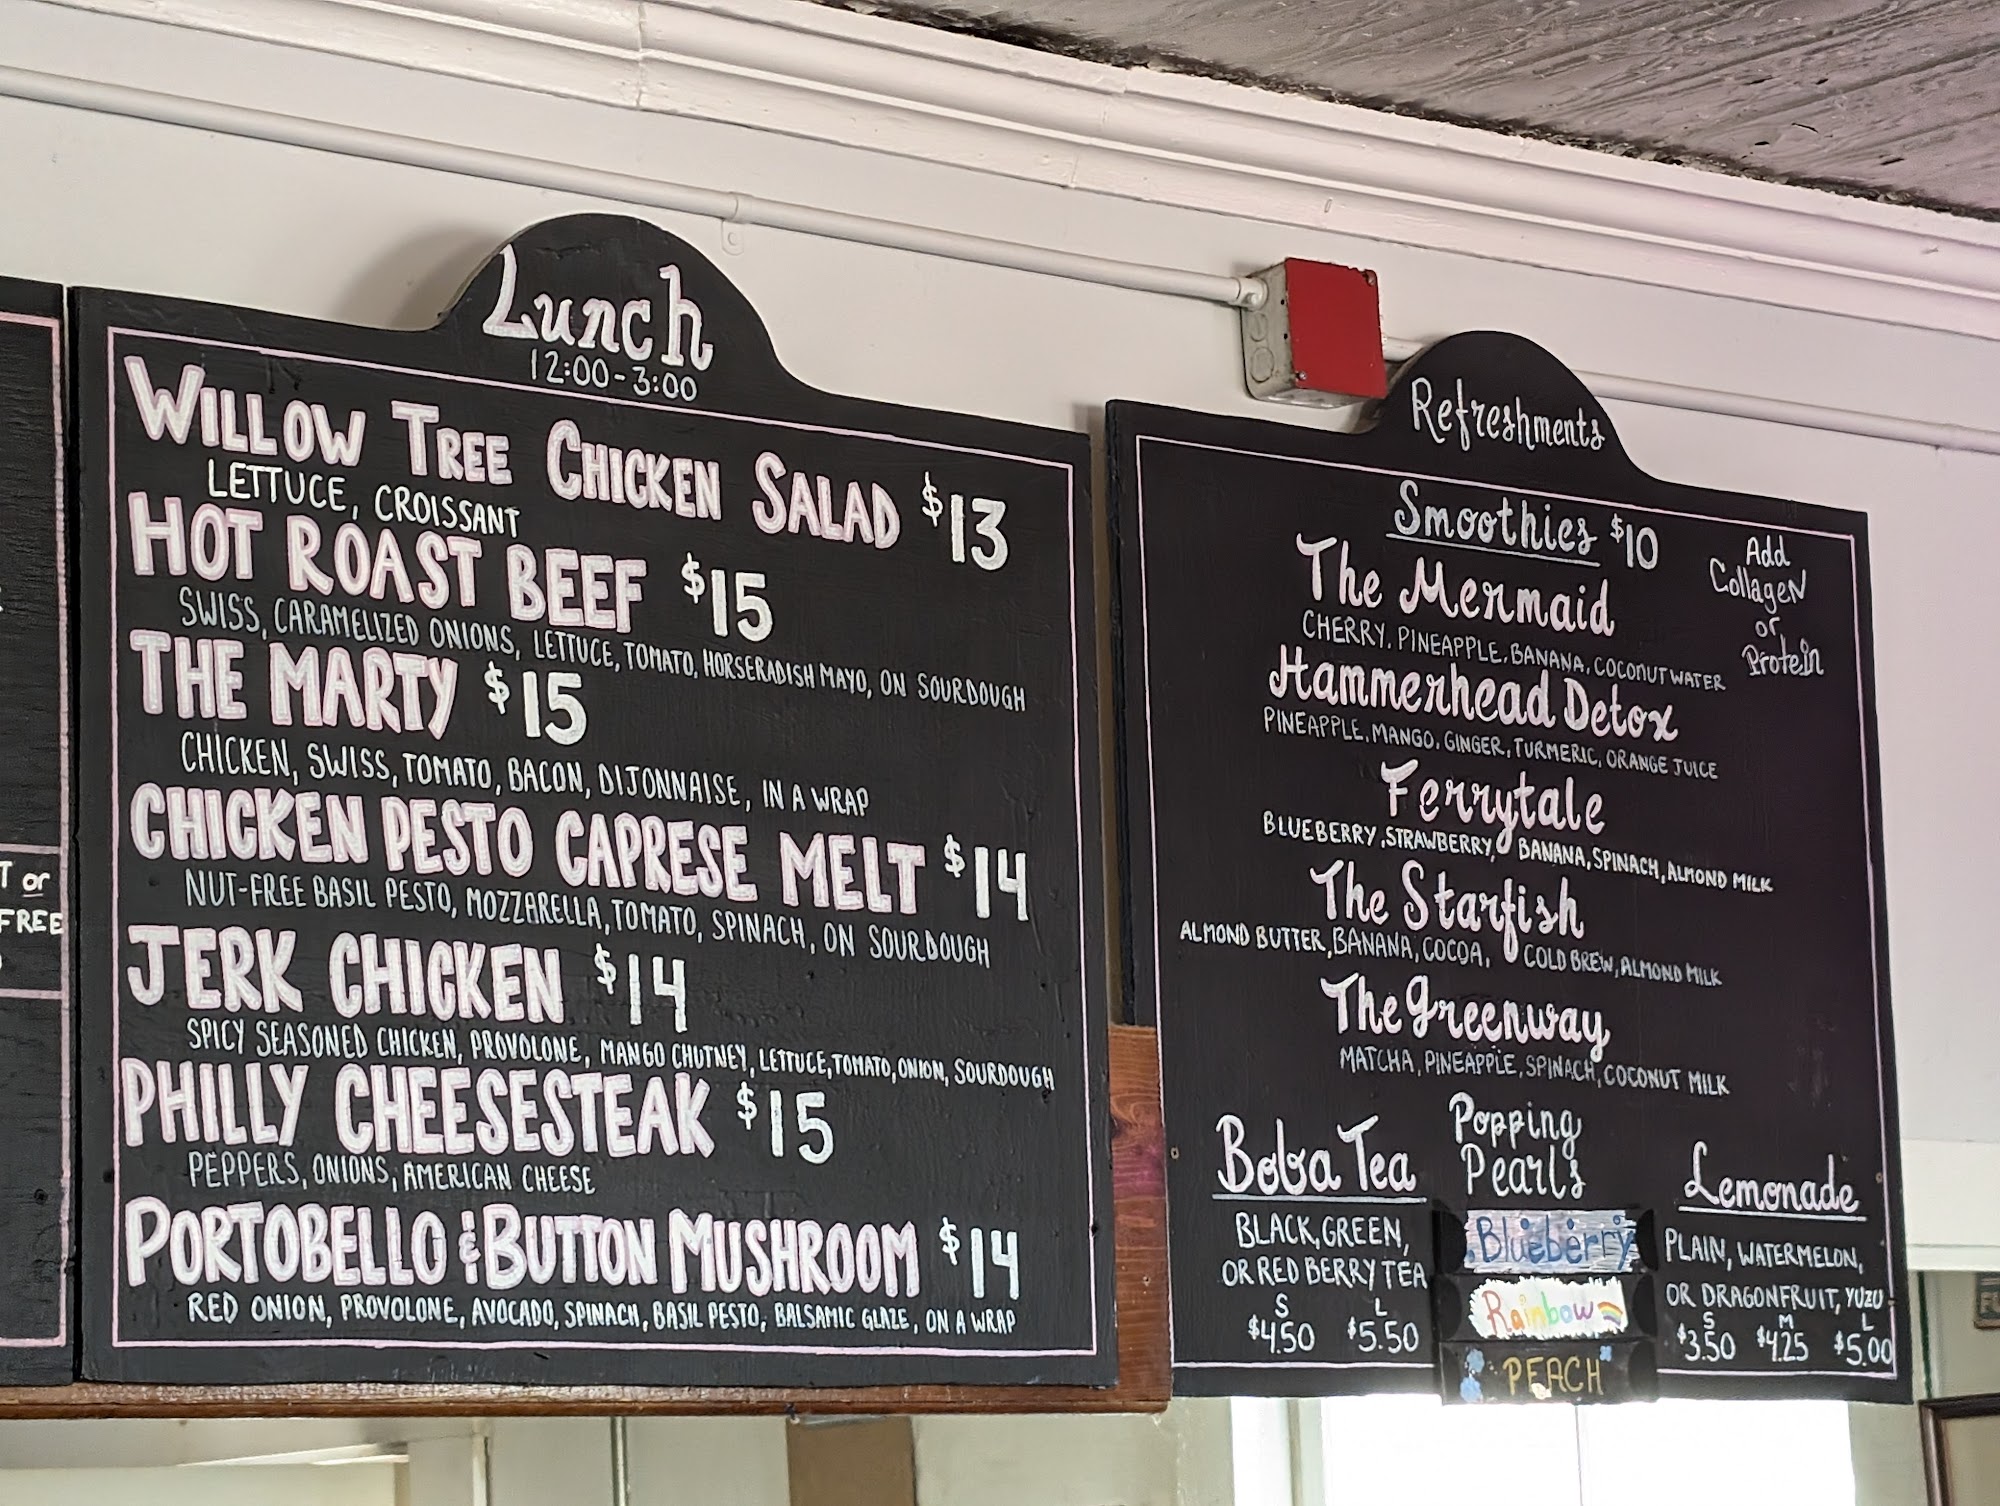 T or
FREE
Lunch
12:00-3:00
WILLOW TREE CHICKEN SALAD $13
LETTUCE, CROISSANT
HOT ROAST BEEF $15
SWISS, CARAMELIZED ONIONS, LETTUCE, TOMATO, HORSERADISH MAYO, ON SOURDOUGH
THE MARTY $15
CHICKEN, SWISS, TOMATO, BACON, DIJONNAISE, IN A WRAP
CHICKEN PESTO CAPRESE MELT $14
NUT-FREE BASIL PESTO, MOZZARELLA, TOMATO, SPINACH, ON SOURDOUGH
JERK CHICKEN $14
SPICY SEASONED CHICKEN, PROVOLONE, MANGO CHUTNEY, LETTUCE, TOMATO, ONION, SOURDOUGH
PHILLY CHEESESTEAK $15
PEPPERS, ONIONS, AMERICAN CHEESE
PORTOBELLO & BUTTON MUSHROOM $14
RED ONION, PROVOLONE, AVOCADO, SPINACH, BASIL PESTO, BALSAMIC GLAZE, ON A WRAP
Refreshments
Smoothies $10
Add
Collagen
or
Protein
The Mermaid
CHERRY, PINEAPPLE, BANANA, COCONUT WATER
Hammerhead Detox
PINEAPPLE, MANGO, GINGER, TURMERIC, ORANGE JUICE
Ferrytale
BLUEBERRY, STRAWBERRY, BANANA, SPINACH, ALMOND MILK
The Starfish
ALMOND BUTTER, BANANA, COCOA, COLD BREW, ALMOND MILK
The Greenway
MATCHA, PINEAPPLE, SPINACH, COCONUT MILK
Boba Tea
BLACK, GREEN,
OR RED BERRY TEA
S L
$4.50 $5.50
Popping
Pearls
Blueberry
Rainbow
PEACH
Lemonade
PLAIN, WATERMELON,
OR DRAGONFRUIT, YUZU
S M L
$3.50 $4.25 $5.00